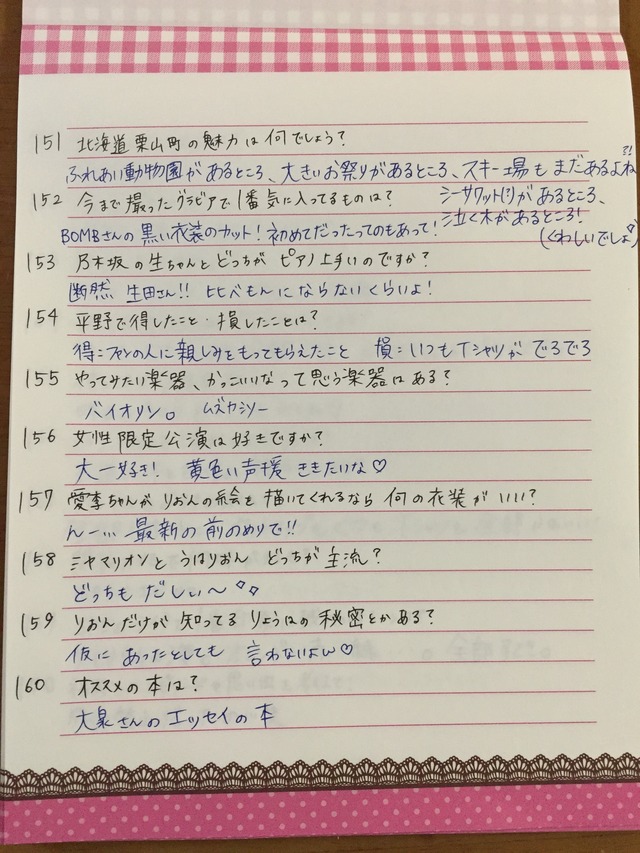 151 北海道栗山町の魅力は何でしょう?
ふれあい動物園があるところ、大きいお祭りがあるところ、スキー場もまだあるよね?!
シーサワット(?)があるところ、
泣く木があるところ!
(くわしいでしょ
152 今まで撮ったグラビアで1番気に入ってるものは?
BOMBさんの黒い衣装のカット!初めてだったってのもあって!
153 乃木坂の生ちゃんとどっちがピアノ上手いのですか?
断然 生田さん!!比べもんにならないくらいよ!
154 平野で得したこと・損したことは?
得:ファンの人に親しみをもってもらえたこと 損:いつもTシャツがでろでろ
155 やってみたい楽器、かっこいいなって思う楽器はある?
バイオリン。 ムズカシソー
156 女性限定公演は好きですか?
大一好き! 黄色い声援ききたいな♡
157 愛李ちゃんがりおんの絵を描いてくれるなら何の衣装がいい?
んー… 最新の前のめりで!!
158 ミヤマリオンとうはりおん どっちが主流?
どっちもだしぃ〜
159 りおんだけが知ってるりょうはの秘密とかある?
仮にあったとしても 言わないよw♡
160 オススメの本は?
大泉さんのエッセイの本